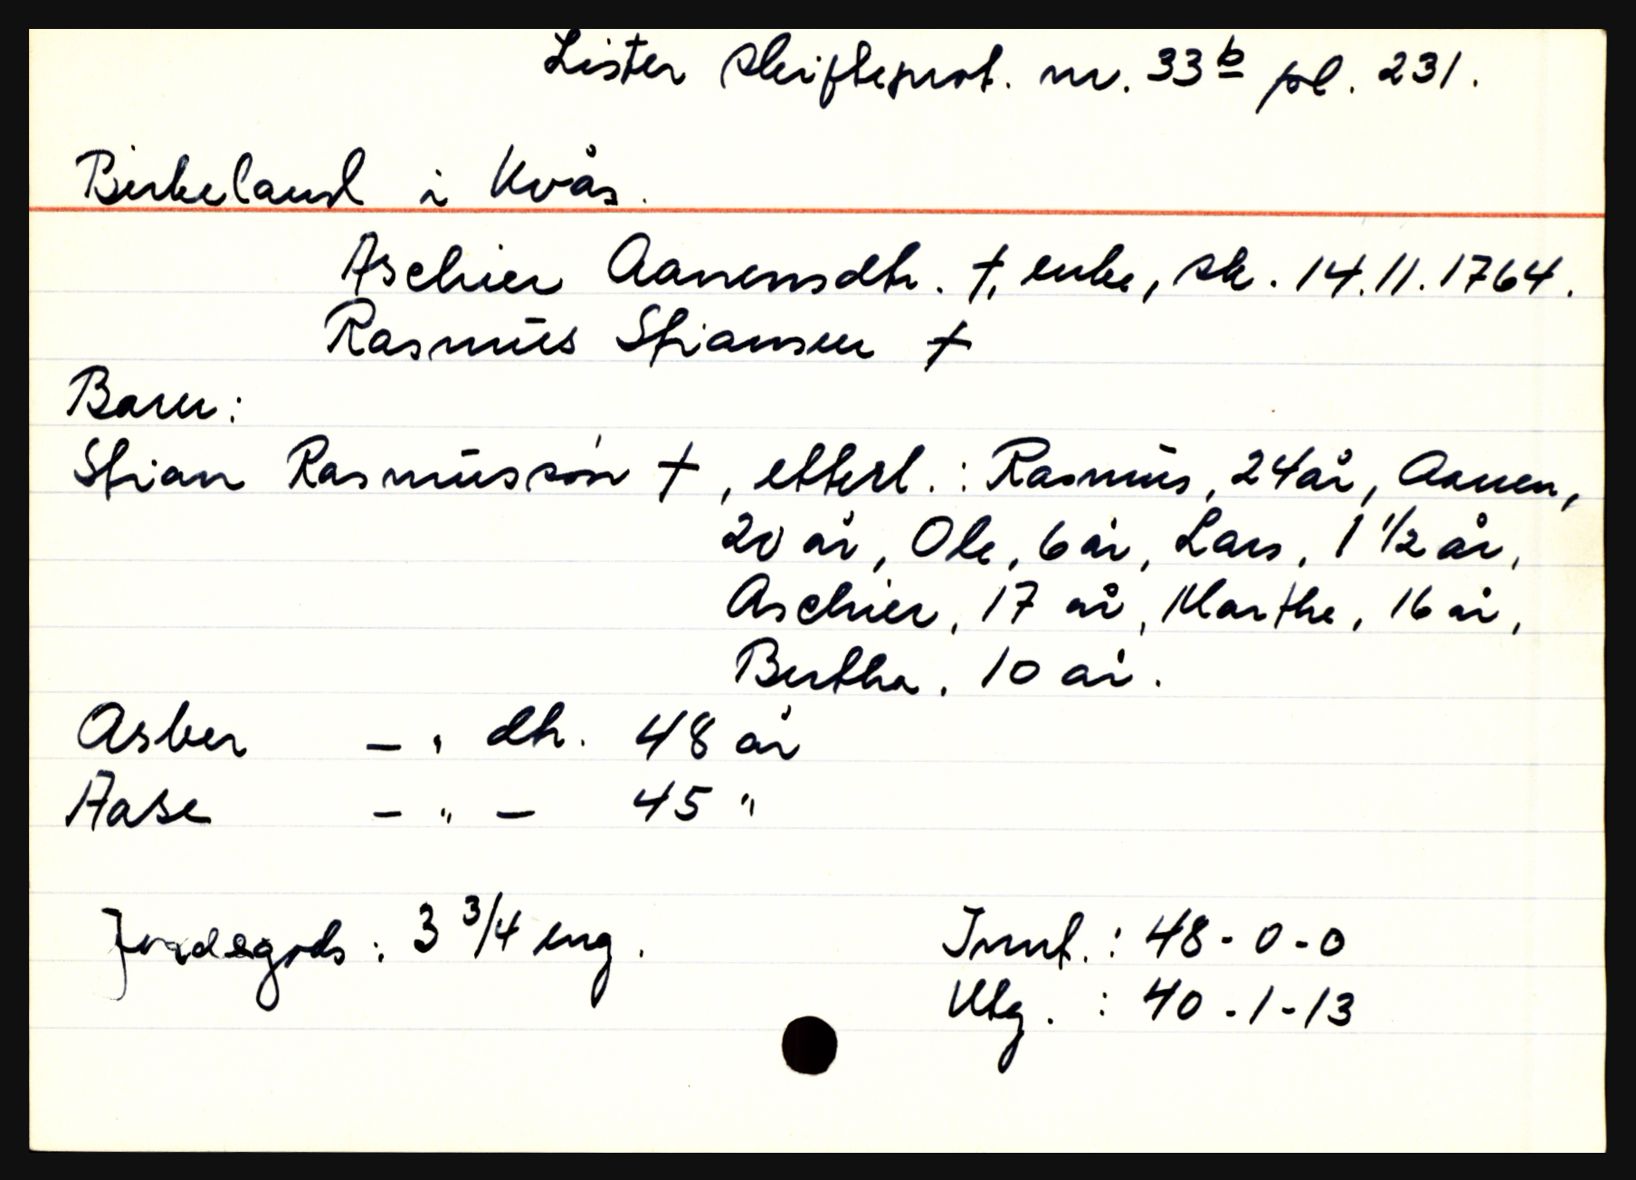 Lister skifteprot. nr. 33b fol. 231.
Birkeland i Kvås.
Aschier Aanensdtr. †, enke, sk. 14.11.1764.
Rasmus Stiansen †
Barn:
Stian Rasmussøn †, etterl.: Rasmus, 24 år, Aanen,
20 år, Ole, 6 år, Lars, 1 1/2 år,
Aschier, 17 år, Marthe, 16 år,
Bertha, 10 år.
Asber - " dtr. 48 år
Aase - " - 45 "
Jordegods: 3 3/4 eng.
Innt.: 48-0-0
Utg.: 40-1-13